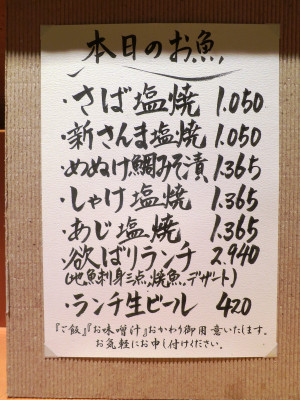 本日のお魚
・さば塩焼 1.050
・新さんま塩焼 1.050
・めぬけ鯛みそ漬 1.365
・しゃけ塩焼 1.365
・あじ塩焼 1.365
・欲ばりランチ 2.940
(地魚刺身三点、焼魚、デザート)
・ランチ生ビール 420
『ご飯』『お味噌汁』おかわり御用意いたします。
お気軽にお申し付けください。